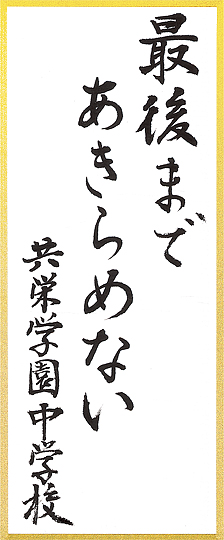 最後まで
あきらめない
共栄学園中学校